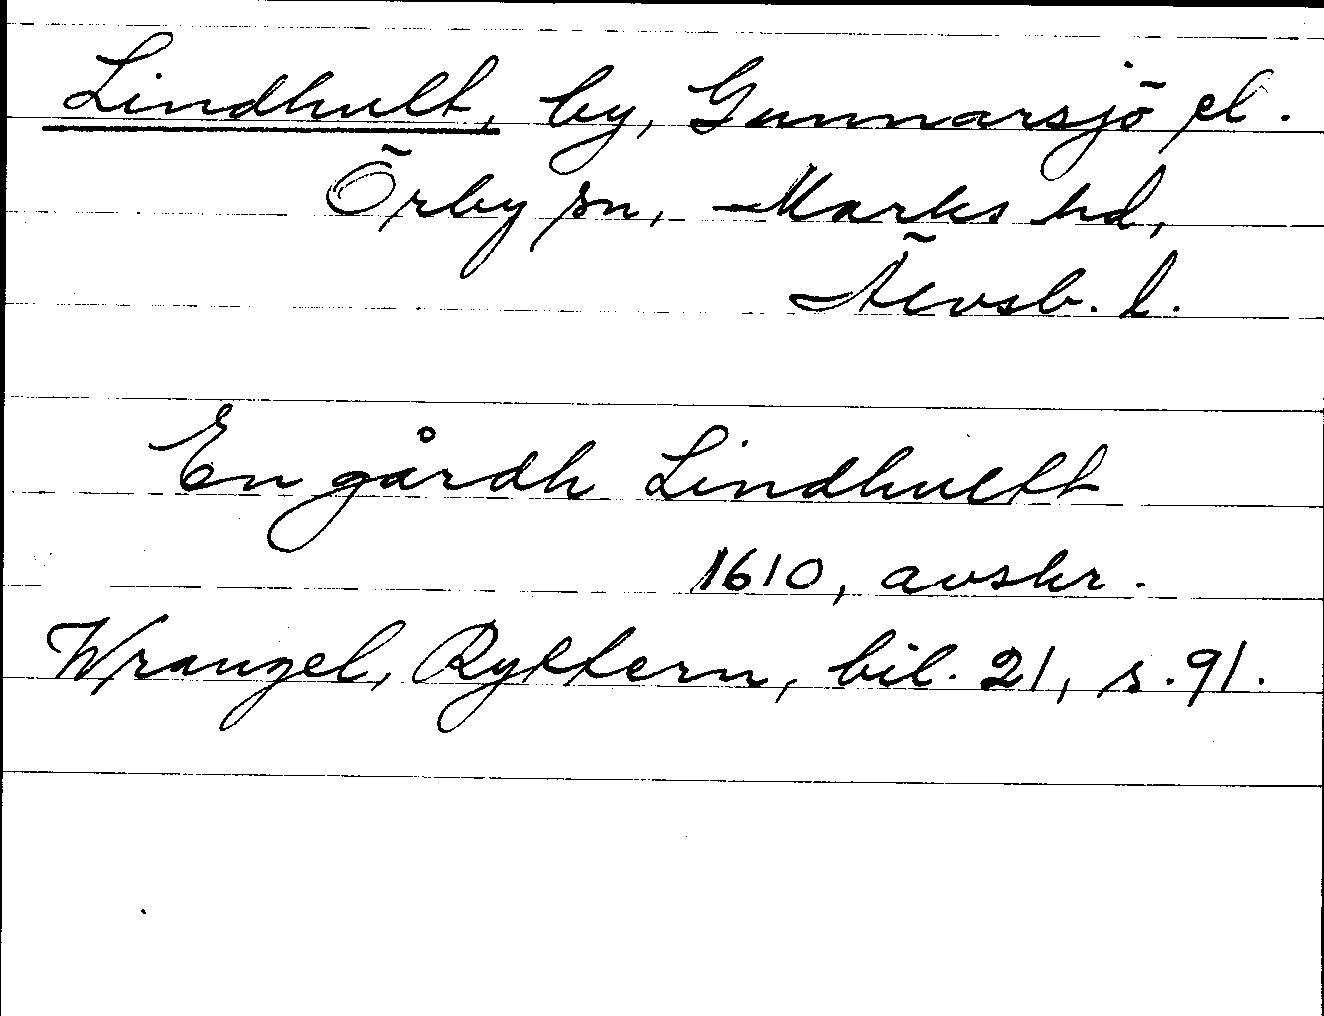 Lindhult, by, Gunnarsjö el.
Örby sn, Marks hd,
Älvsb. l.
En gårdh Lindhultt
1610, avskr.
Wrangel, Ryttern, bil. 21, s. 91.